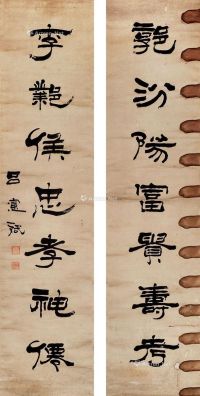 郭汾陽富貴壽考
李鄴侯忠孝神僊